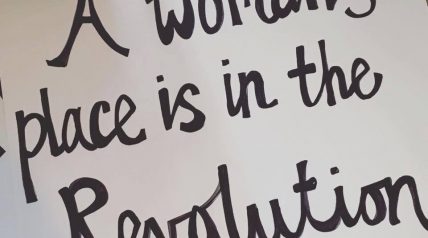 A Woman's
place is in the
Revolution